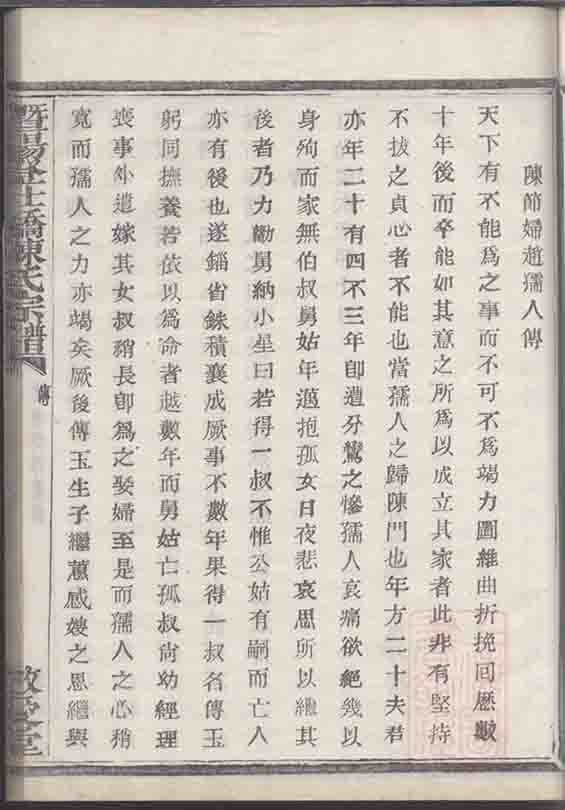 陳節婦趙孺人傳
天下有不能為之事而不可不為竭力圖維曲折挽回歷數
十年後而卒能如其意之所為以成立其家者此非有堅持
不拔之貞心者不能也當孺人之歸陳門也年方二十夫君
亦年二十有四不三年卽遭分鸞之慘孺人哀痛欲絕幾以
身殉而家無伯叔舅姑年邁抱孤女日夜悲哀思所以繼其
後者乃力勸舅納小星曰若得一叔不惟公姑有嗣而亡人
亦有後也遂錙省銖積襄成厥事不數年果得一叔名傳玉
躬同撫養若依以為命者越數年而舅姑亡孤叔尙幼經理
喪事外遣嫁其女叔稍長卽為之娶婦至是而孺人之心稍
寬而孺人之力亦竭矣厥後傳玉生子繼蕙感嫂之恩繼與
暨陽 社橋陳氏宗譜
傳
敬愛堂